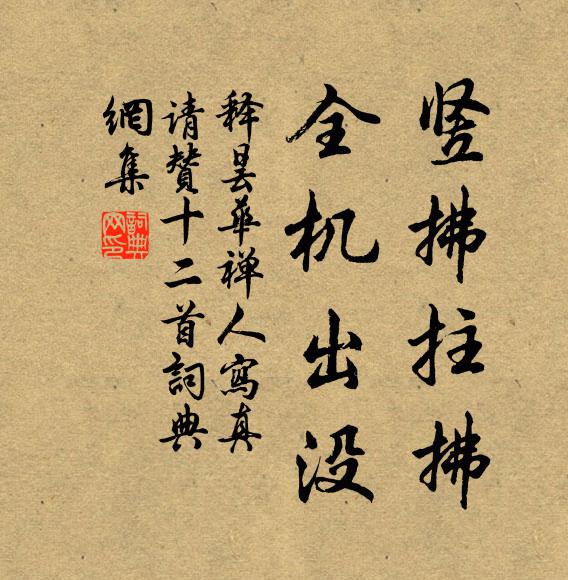 竖拂拄拂
全机出没
释昙华禅人寫真
请赞十二首詞典
網集
詞典网印